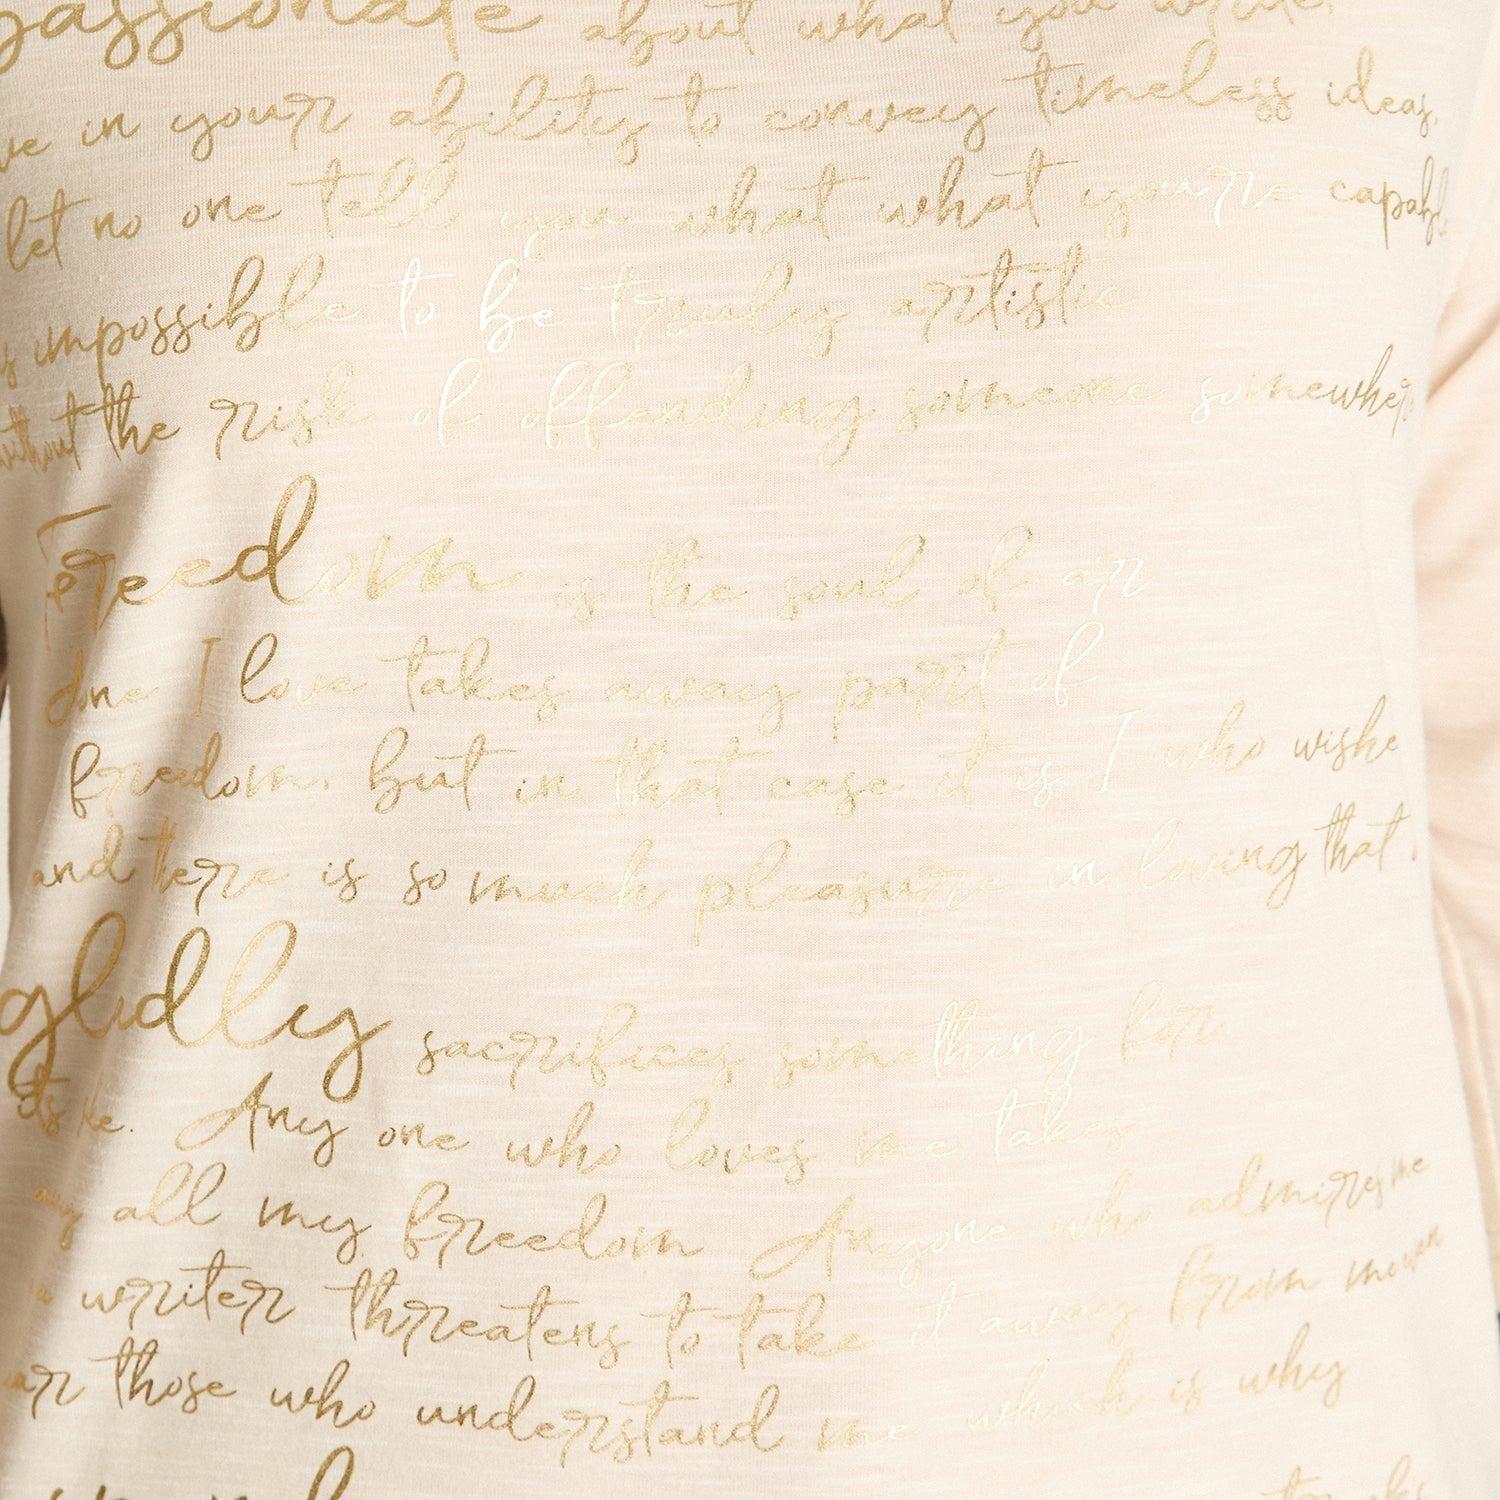 passionate about what you write
ve in your ability to convey timeless ideas,
let no one tell you what what you're capabl
s impossible to be truly artistic
without the risk of offanding someone somewhere
Freedom is the soul of ar
done I love takes away part of
freedom. But in that case it is I who wishe
and there is so much pleasure in loving that
glidly sacrifices something for
its ke. Any one who loves me takes
all my freedom Anyone who admires me
a writer threatens to take it away from me
ar those who understand me which is why